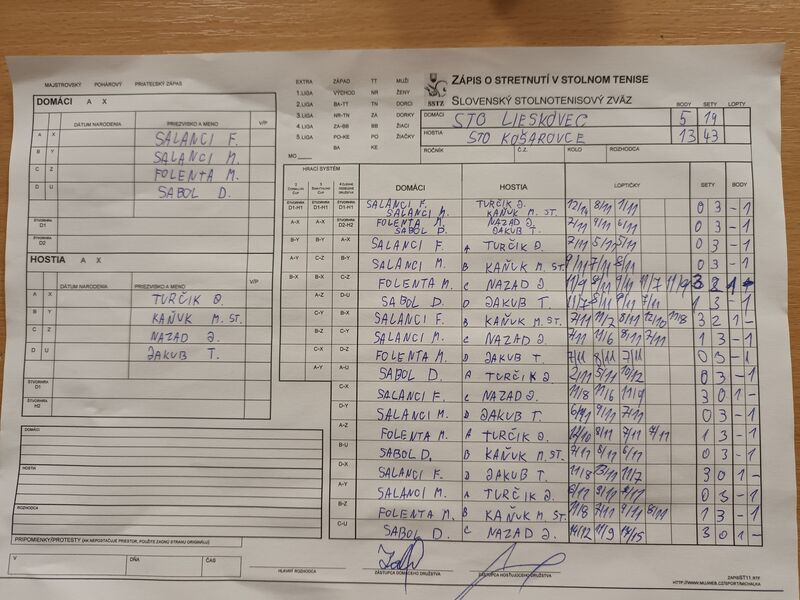 MAJSTROVSKÝ POHÁROVÝ PRIATEĽSKÝ ZÁPAS
EXTRA ZÁPAD TT MUŽI
1.LIGA VÝCHOD NR ŽENY
2.LIGA BA-TT TN DORCI
3.LIGA NR-TN ZA DORKY
4.LIGA ZA-BB BB ŽIACI
5.LIGA PO-KE PO ŽIAČKY
BA KE
MO
SSTZ
ZÁPIS O STRETNUTÍ V STOLNOM TENISE
SLOVENSKÝ STOLNOTENISOVÝ ZVÄZ
BODY SETY LOPTY
DOMÁCI STO LIESKOVEC 5 19
HOSTIA STO KOŠAROVCE 13 43
ROČNÍK Č.Z. KOLO ROZHODCA
DOMÁCI A X
DÁTUM NARODENIA PRIEZVISKO A MENO V/P
A X SALANCI F.
B Y SALANCI M.
C Z FOLENTA M.
D U SABOL D.
ŠTVORHRA D1
ŠTVORHRA D2
HOSTIA A X
DÁTUM NARODENIA PRIEZVISKO A MENO V/P
A X TURČIK J.
B Y KAŇUK M. ST.
C Z NAZAD J.
D U JAKUB T.
ŠTVORHRA D1
ŠTVORHRA H2
DOMÁCI
HOSTIA
ROZHODCA
PRIPOMIENKY/PROTESTY (AK NEPOSTAČUJE PRIESTOR, POUŽITE ZADNÚ STRANU ORIGINÁLU)
V DŇA ČAS
HRACÍ SYSTÉM
DOMÁCI HOSTIA LOPTIČKY SETY BODY
D1-H1 D1-H1 D1-H1 SALANCI F. TURČIK J. 12/14 8/11 1/11 0 3 - 1
SALANCI M. KAŇUK M. ST.
A-X A-X D2-H2 FOLENTA M. NAZAD J. 2/11 9/11 6/11 0 3 - 1
SABOL D. JAKUB T.
B-Y B-Y A-X SALANCI F. A TURČIK J. 2/11 5/11 5/11 0 3 - 1
A-Y C-Z B-Y SALANCI M. B KAŇUK M. ST. 9/11 7/11 8/11 0 3 - 1
B-X B-X C-Z FOLENTA M. C NAZAD J. 11/9 8/11 9/11 11/7 11/9 3 2 1 -
A-Z D-U SABOL D. D JAKUB T. 11/7 8/11 9/11 7/11 1 3 - 1
C-Y B-X SALANCI F. B KAŇUK M. ST. 7/11 11/2 8/11 12/10 11/8 3 2 1 -
B-Z C-Y SALANCI M. C NAZAD J. 7/11 11/6 8/11 7/11 1 3 - 1
C-X D-Z FOLENTA M. D JAKUB T. 7/11 8/11 7/11 0 3 - 1
A-Y A-U SABOL D. A TURČIK J. 2/11 5/11 10/12 0 3 - 1
C-X SALANCI F. C NAZAD J. 11/8 11/6 11/9 3 0 1 -
D-Y SALANCI M. D JAKUB T. 6/11 9/11 7/11 0 3 - 1
A-Z FOLENTA M. A TURČIK J. 12/10 8/11 7/11 7/11 1 3 - 1
B-U SABOL D. B KAŇUK M. ST. 7/11 8/11 6/11 0 3 - 1
D-X SALANCI F. D JAKUB T. 11/8 13/11 11/7 3 0 1 -
A-Y SALANCI M. A TURČIK J. 8/11 9/11 8/11 0 3 - 1
B-Z FOLENTA M. B KAŇUK M. ST. 11/8 7/11 9/11 8/11 1 3 - 1
C-U SABOL D. C NAZAD J. 14/12 11/9 3 0 1 -
HLAVNÝ ROZHODCA ZÁSTUPCA DOMÁCEHO DRUŽSTVA ZÁSTUPCA HOSŤUJÚCEHO DRUŽSTVA
ZAPISST11.RTF
HTTP://WWW.MUJWEB.CZ/SPORT/MICHALKA